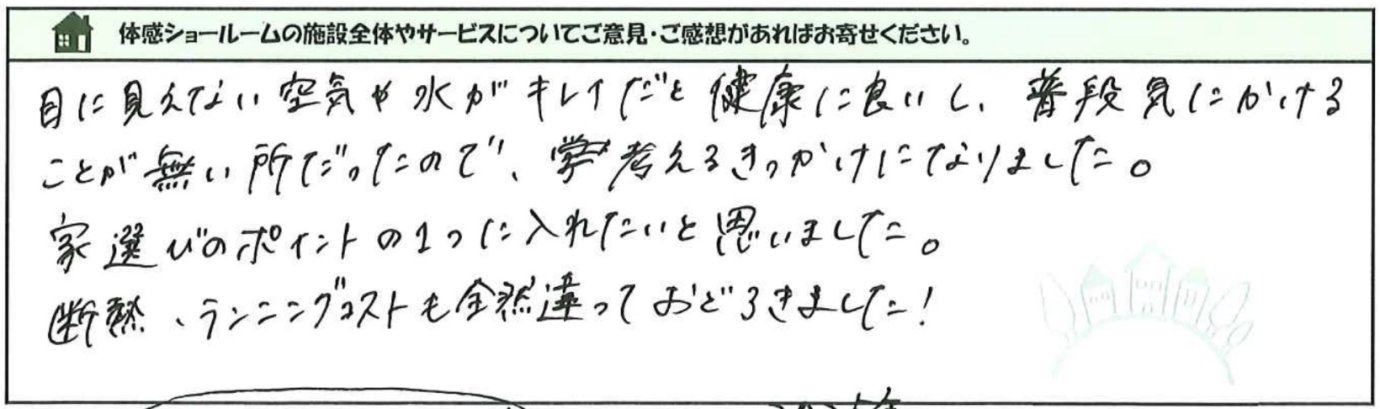 体感ショールームの施設全体やサービスについてご意見・ご感想があればお寄せください。
目に見えない空気や水がキレイだと健康に良いし、普段気にかける
ことが無い所だったので、考えるきっかけになりました。
家選びのポイントの1つに入れたいと思いました。
断熱、ランニングコストも全然違っておどろきました!